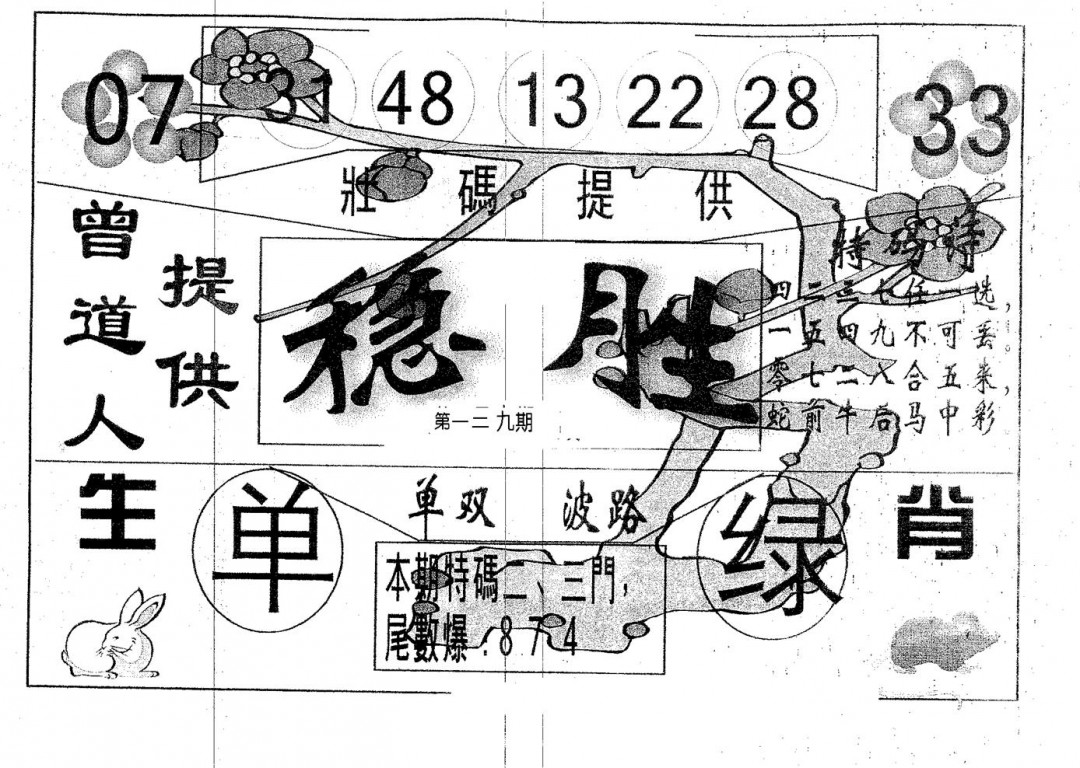 07 31 48 13 22 28 33
壯碼提供
曾道人
提供
穩胜
第一三九期
特碼诗
四二三七任一选，
一五四九不可丢。
零七二八合五来，
蛇前牛后马中彩
生肖
单双 波路
单
绿
本期特碼二、三門，
尾數爆：874